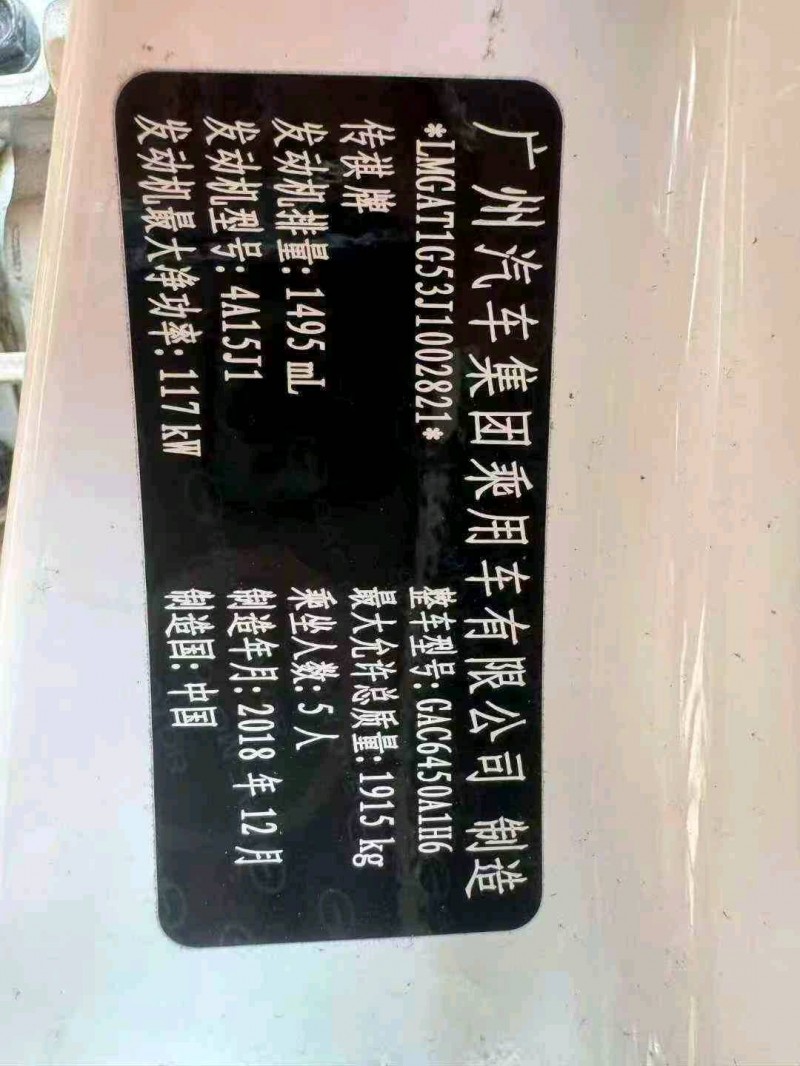 广州汽车集团乘用车有限公司 制造
*LMGAT1G53J1002821*
整车型号:GAC6450A1H6
传祺牌
最大允许总质量:1915 kg
发动机排量:1495 mL
乘坐人数:5 人
发动机型号:4A15J1
制造年月:2018 年 12 月
发动机最大净功率:117 kW
制造国:中国